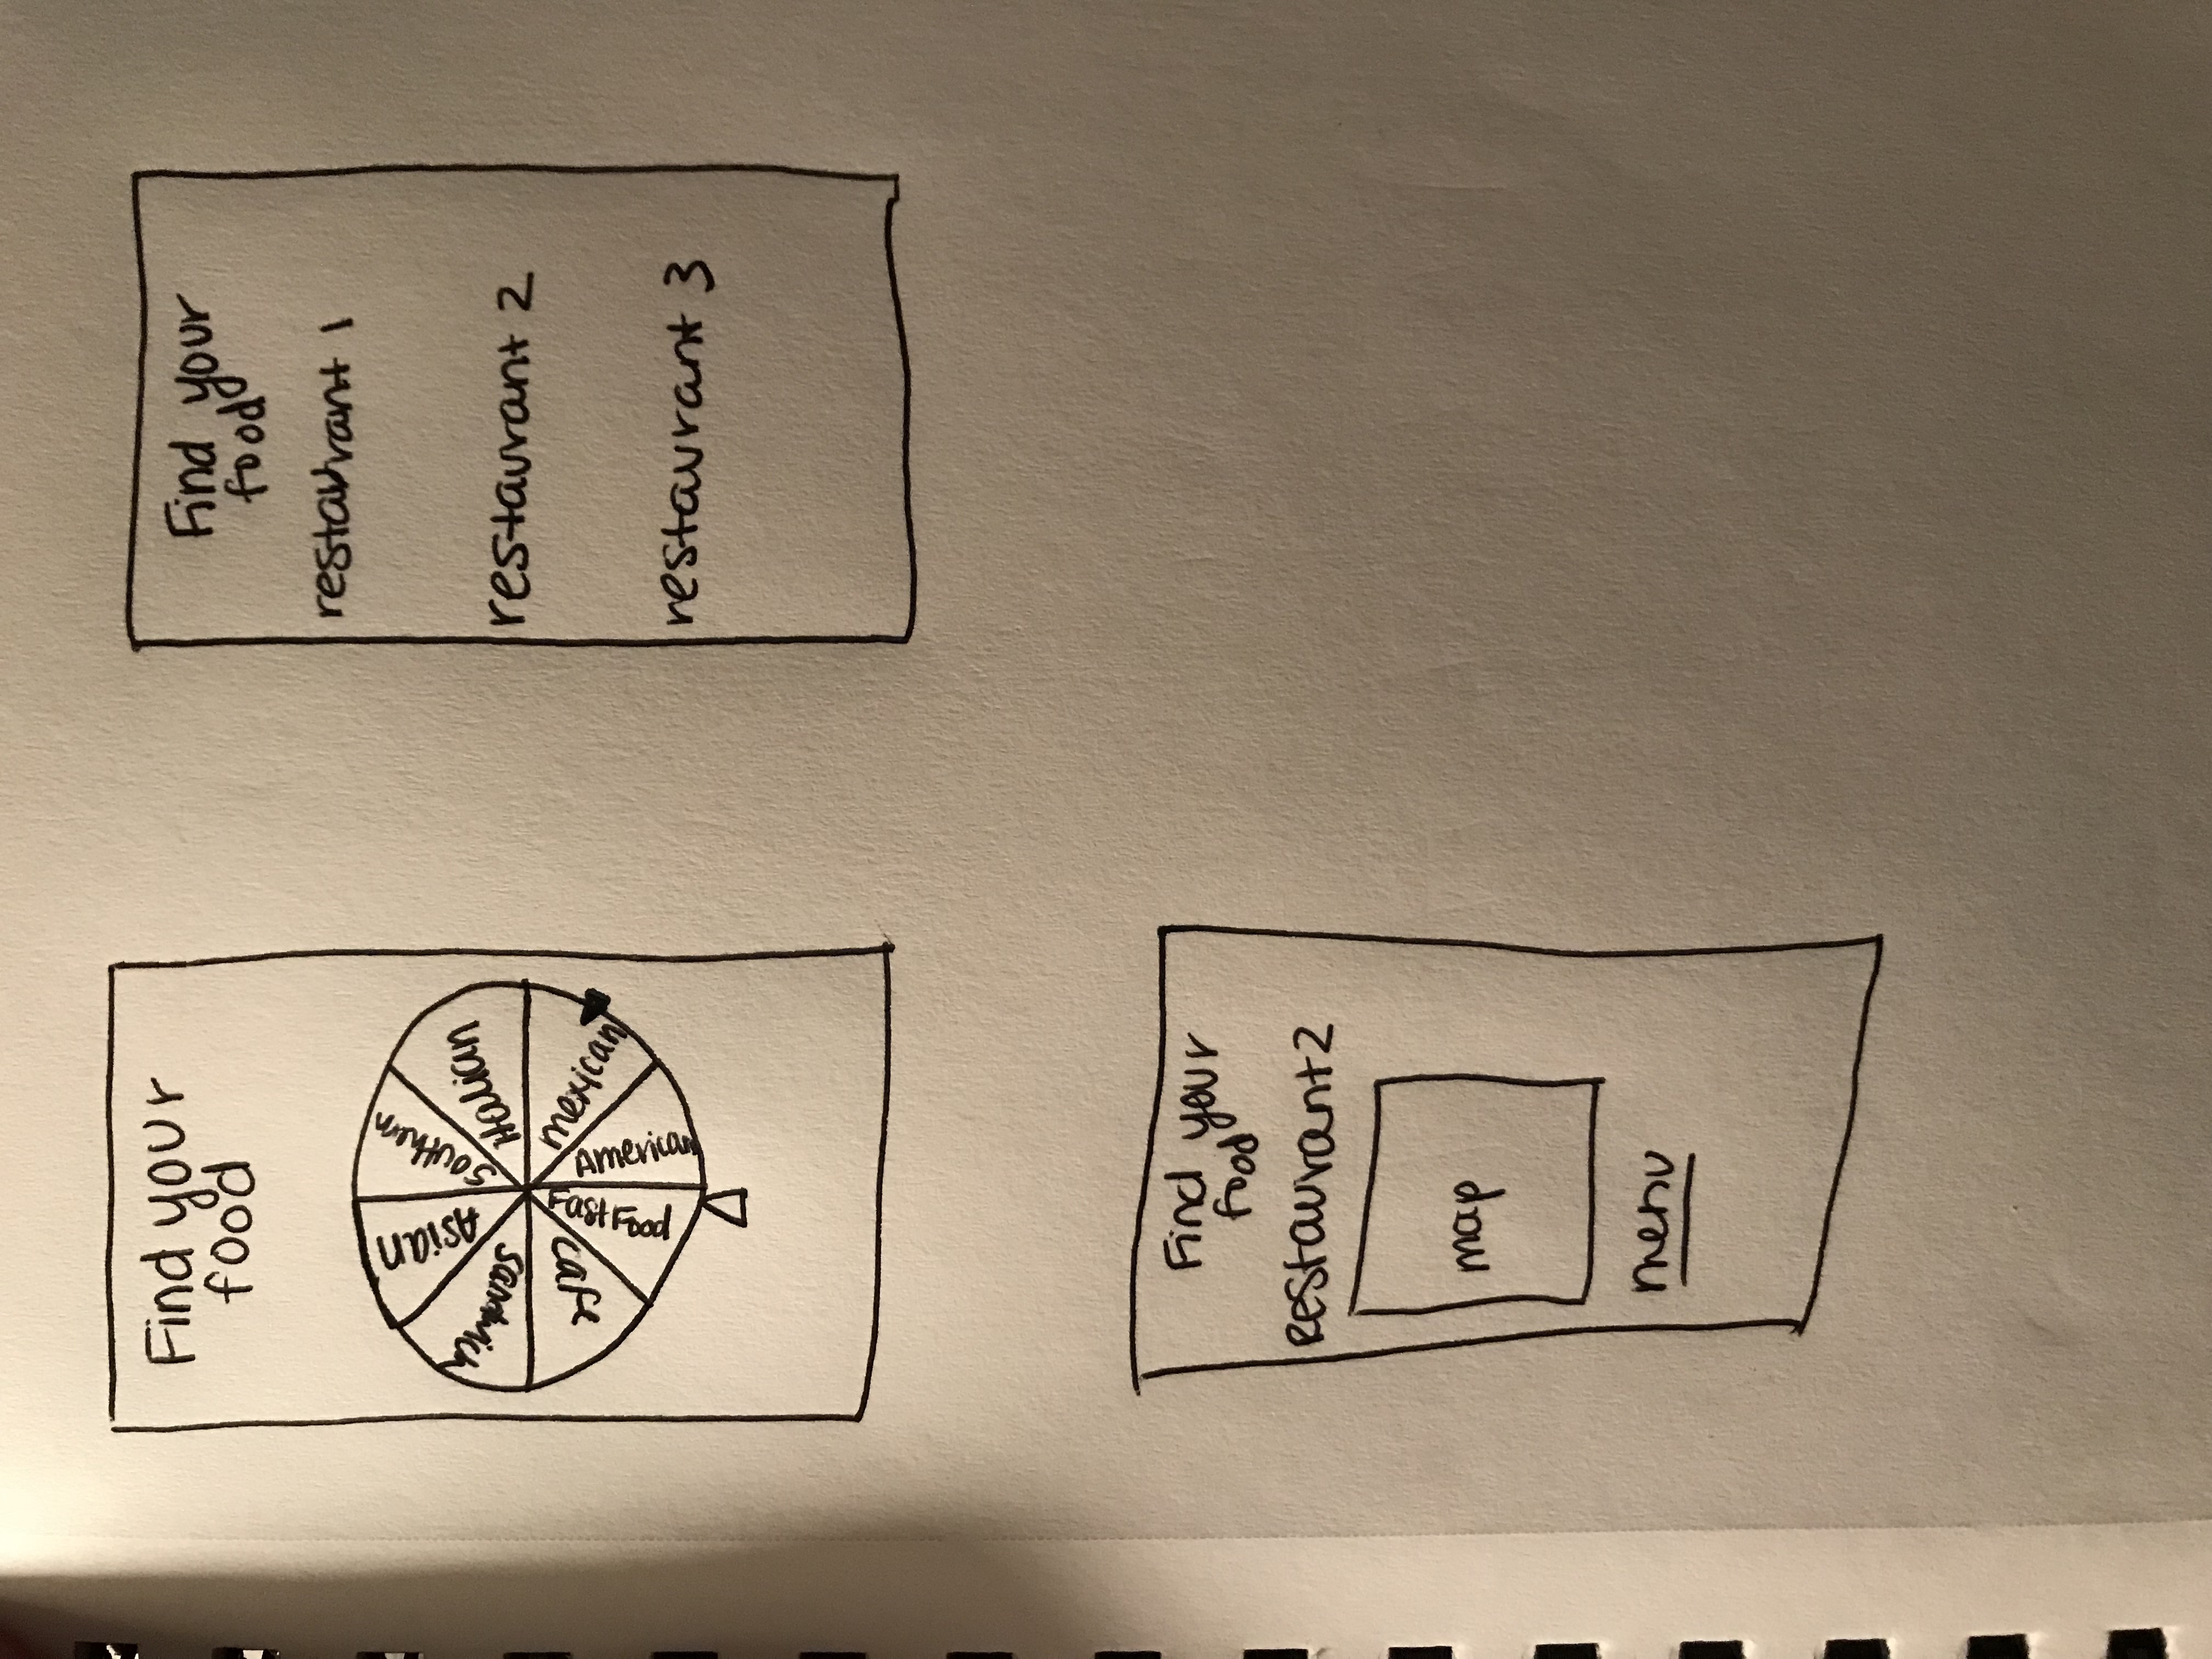 Find your
food
Asian
Southern
Italian
mexican
American
Fast Food
cafe
sandwich
Find your
food
restaurant 1
restaurant 2
restaurant 3
Find your
food
Restaurant 2
map
menu